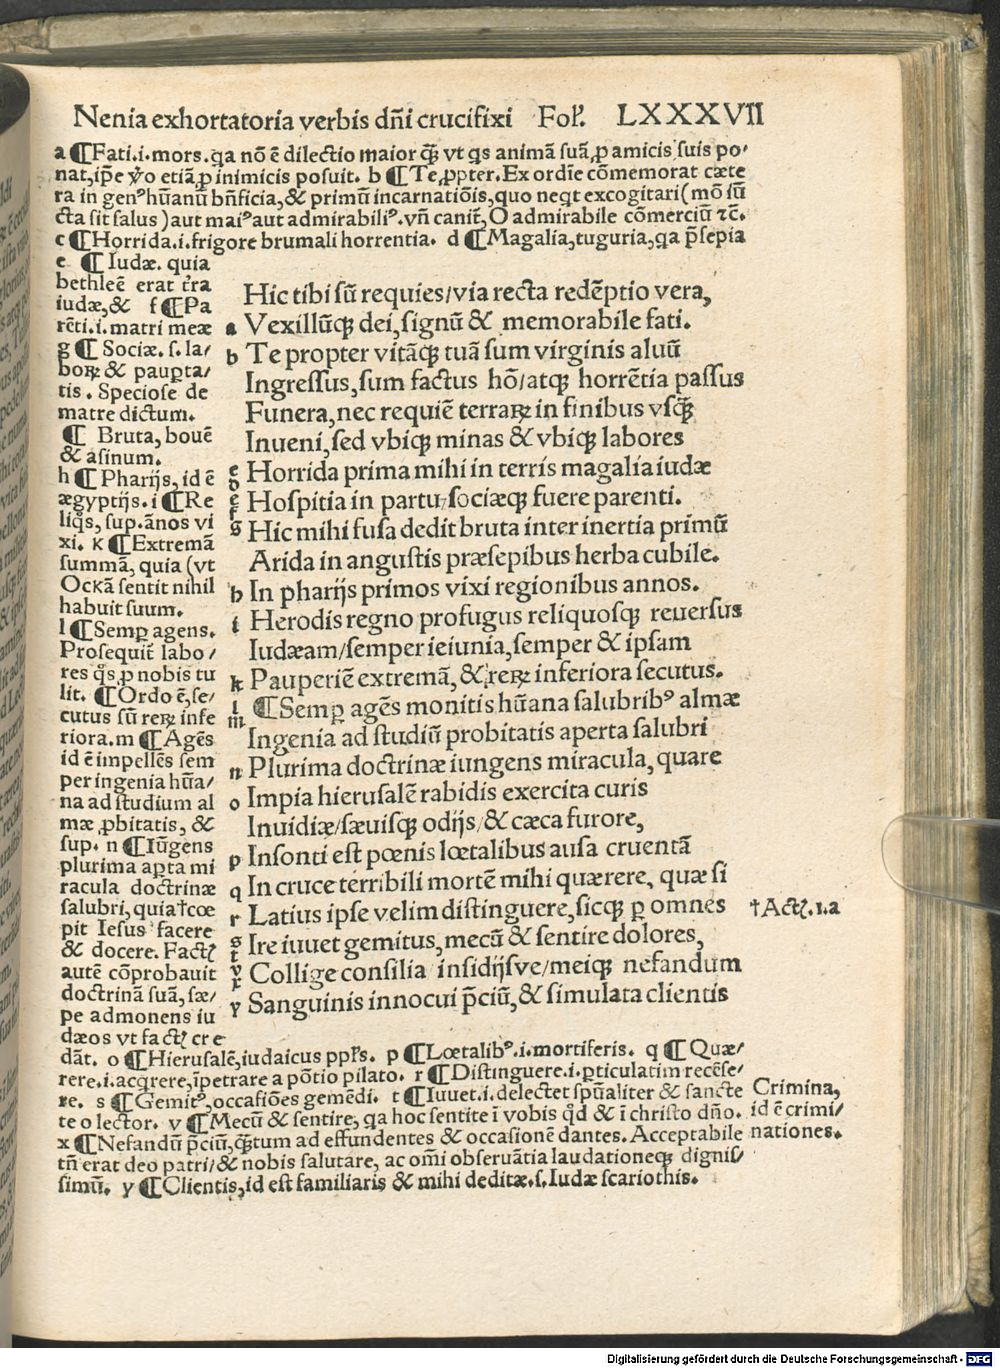 Nenia exhortatoria verbis dñi crucifixi Fol. LXXXVII
a ¶Fati.i.mors.qa nõ ẽ dilectio maior ꝙ̃ vt qs animã suã, ꝓ amicis suis po-
nat, ipẽ ꝟo etiã ꝓ inimicis posuit. b ¶Te, ꝓpter. Ex ordĩe cõmemorat cæte
ra in genꝰ hũanũ bñficia, & primũ incarnatiõis, quo neqt excogitari (mõ sũ
cta sit salus) aut maiꝰ aut admirabiliꝰ. vñ canit̃, O admirabile cõmerciũ ⁊c̃.
c ¶Horrida.i.frigore brumali horrentia. d ¶Magalia, tuguria, qa p̃sepia
e ¶Iudæ. quia
bethleẽ erat tr̃ra
iudæ, & f ¶Pa
rẽti.i.matri meæ
g ¶Sociæ.s.la/
boꝝ & pauꝑta/
tis. Speciose de
matre dictum.
¶ Bruta, bouẽ
& asinum.
h ¶Pharijs, id ẽ
ægyptijs. i ¶Re
liqs̃, sup. ãnos vi
xi. k ¶Extremã
summã, quia (vt
Ockã sentit nihil
habuit suum.
l ¶Semꝑ agens.
Prosequit̃ labo/
res qs̃, ꝓ nobis tu
lit. ¶Ordo ẽ, se/
cutus sũ reꝝ infe
riora. m ¶Agẽs
id ẽ impellẽs sem
per ingenia hũa/
na ad studium al
mæ ꝓbitatis, &
sup. n ¶Iũgens
plurima aꝑta mi
racula doctrinæ
salubri, quia †cœ
pit Iesus facere
& docere. Factꝭ
autẽ cõprobauit
doctrinã suã, sæ/
pe admonens iu
dæos vt factꝭ cre
Hic tibi sũ requies/via recta redẽptio vera,
a Vexillũqꝫ dei, signũ & memorabile fati.
b Te propter vitãqꝫ tuã sum virginis aluũ
Ingressus, sum factus hõ/atqꝫ horrẽtia passus
Funera, nec requiẽ terraꝝ in finibus vsqꝫ̃
Inueni, sed vbiqꝫ minas & vbiqꝫ labores
c Horrida prima mihi in terris magalia iudæ
f Hospitia in partu/sociæqꝫ fuere parenti.
g Hic mihi fusa dedit bruta inter inertia primũ
Arida in angustis præsepibus herba cubile.
h In pharijs primos vixi regionibus annos.
i Herodis regno profugus reliquosqꝫ reuersus
Iudæam/semper ieiunia, semper & ipsam
k Pauperiẽ extremã, & reꝝ inferiora secutus.
l ¶Semꝑ agẽs monitis hũana salubribꝰ almæ
m Ingenia ad studiũ probitatis aperta salubri
n Plurima doctrinæ iungens miracula, quare
o Impia hierusalẽ rabidis exercita curis
Inuidiæ/sæuisqꝫ odijs/& cæca furore,
p Insonti est pœnis lœtalibus ausa cruentã
q In cruce terribili mortẽ mihi quærere, quæ si
r Latius ipse velim distinguere, sicqꝫ ꝑ omnes
s t Ire iuuet gemitus, mecũ & sentire dolores,
v x Collige consilia insidijsve/meiqꝫ nefandum
y Sanguinis innocui p̃ciũ, & simulata clientis
†Actꝭ.1.a
dãt. o ¶Hierusalẽ, iudaicus ppl̃s. p ¶Lœtalibꝰ.i.mortiferis. q ¶Quæ/
rere.i.acqrere, ĩpetrare a põtio pilato. r ¶Distinguere.i.ꝑticulatim recẽse/
re. s ¶Gemitꝰ, occasiões gemẽdi. t ¶Iuuet.i.delectet spũaliter & sancte
te o lector. v ¶Mecũ & sentire, qa hoc sentite ĩ vobis qd̃ & ĩ christo dño.
x ¶Nefandũ p̃ciũ, qꝫ̃tum ad effundentes & occasionẽ dantes. Acceptabile
tñ erat deo patri/& nobis salutare, ac omĩ obseruãtia laudationeqꝫ dignis/
simũ. y ¶Clientis, id est familiaris & mihi deditæ.s.Iudæ scariothis.
Crimina,
id ẽ crimi/
nationes.
Digitalisierung gefördert durch die Deutsche Forschungsgemeinschaft - DFG